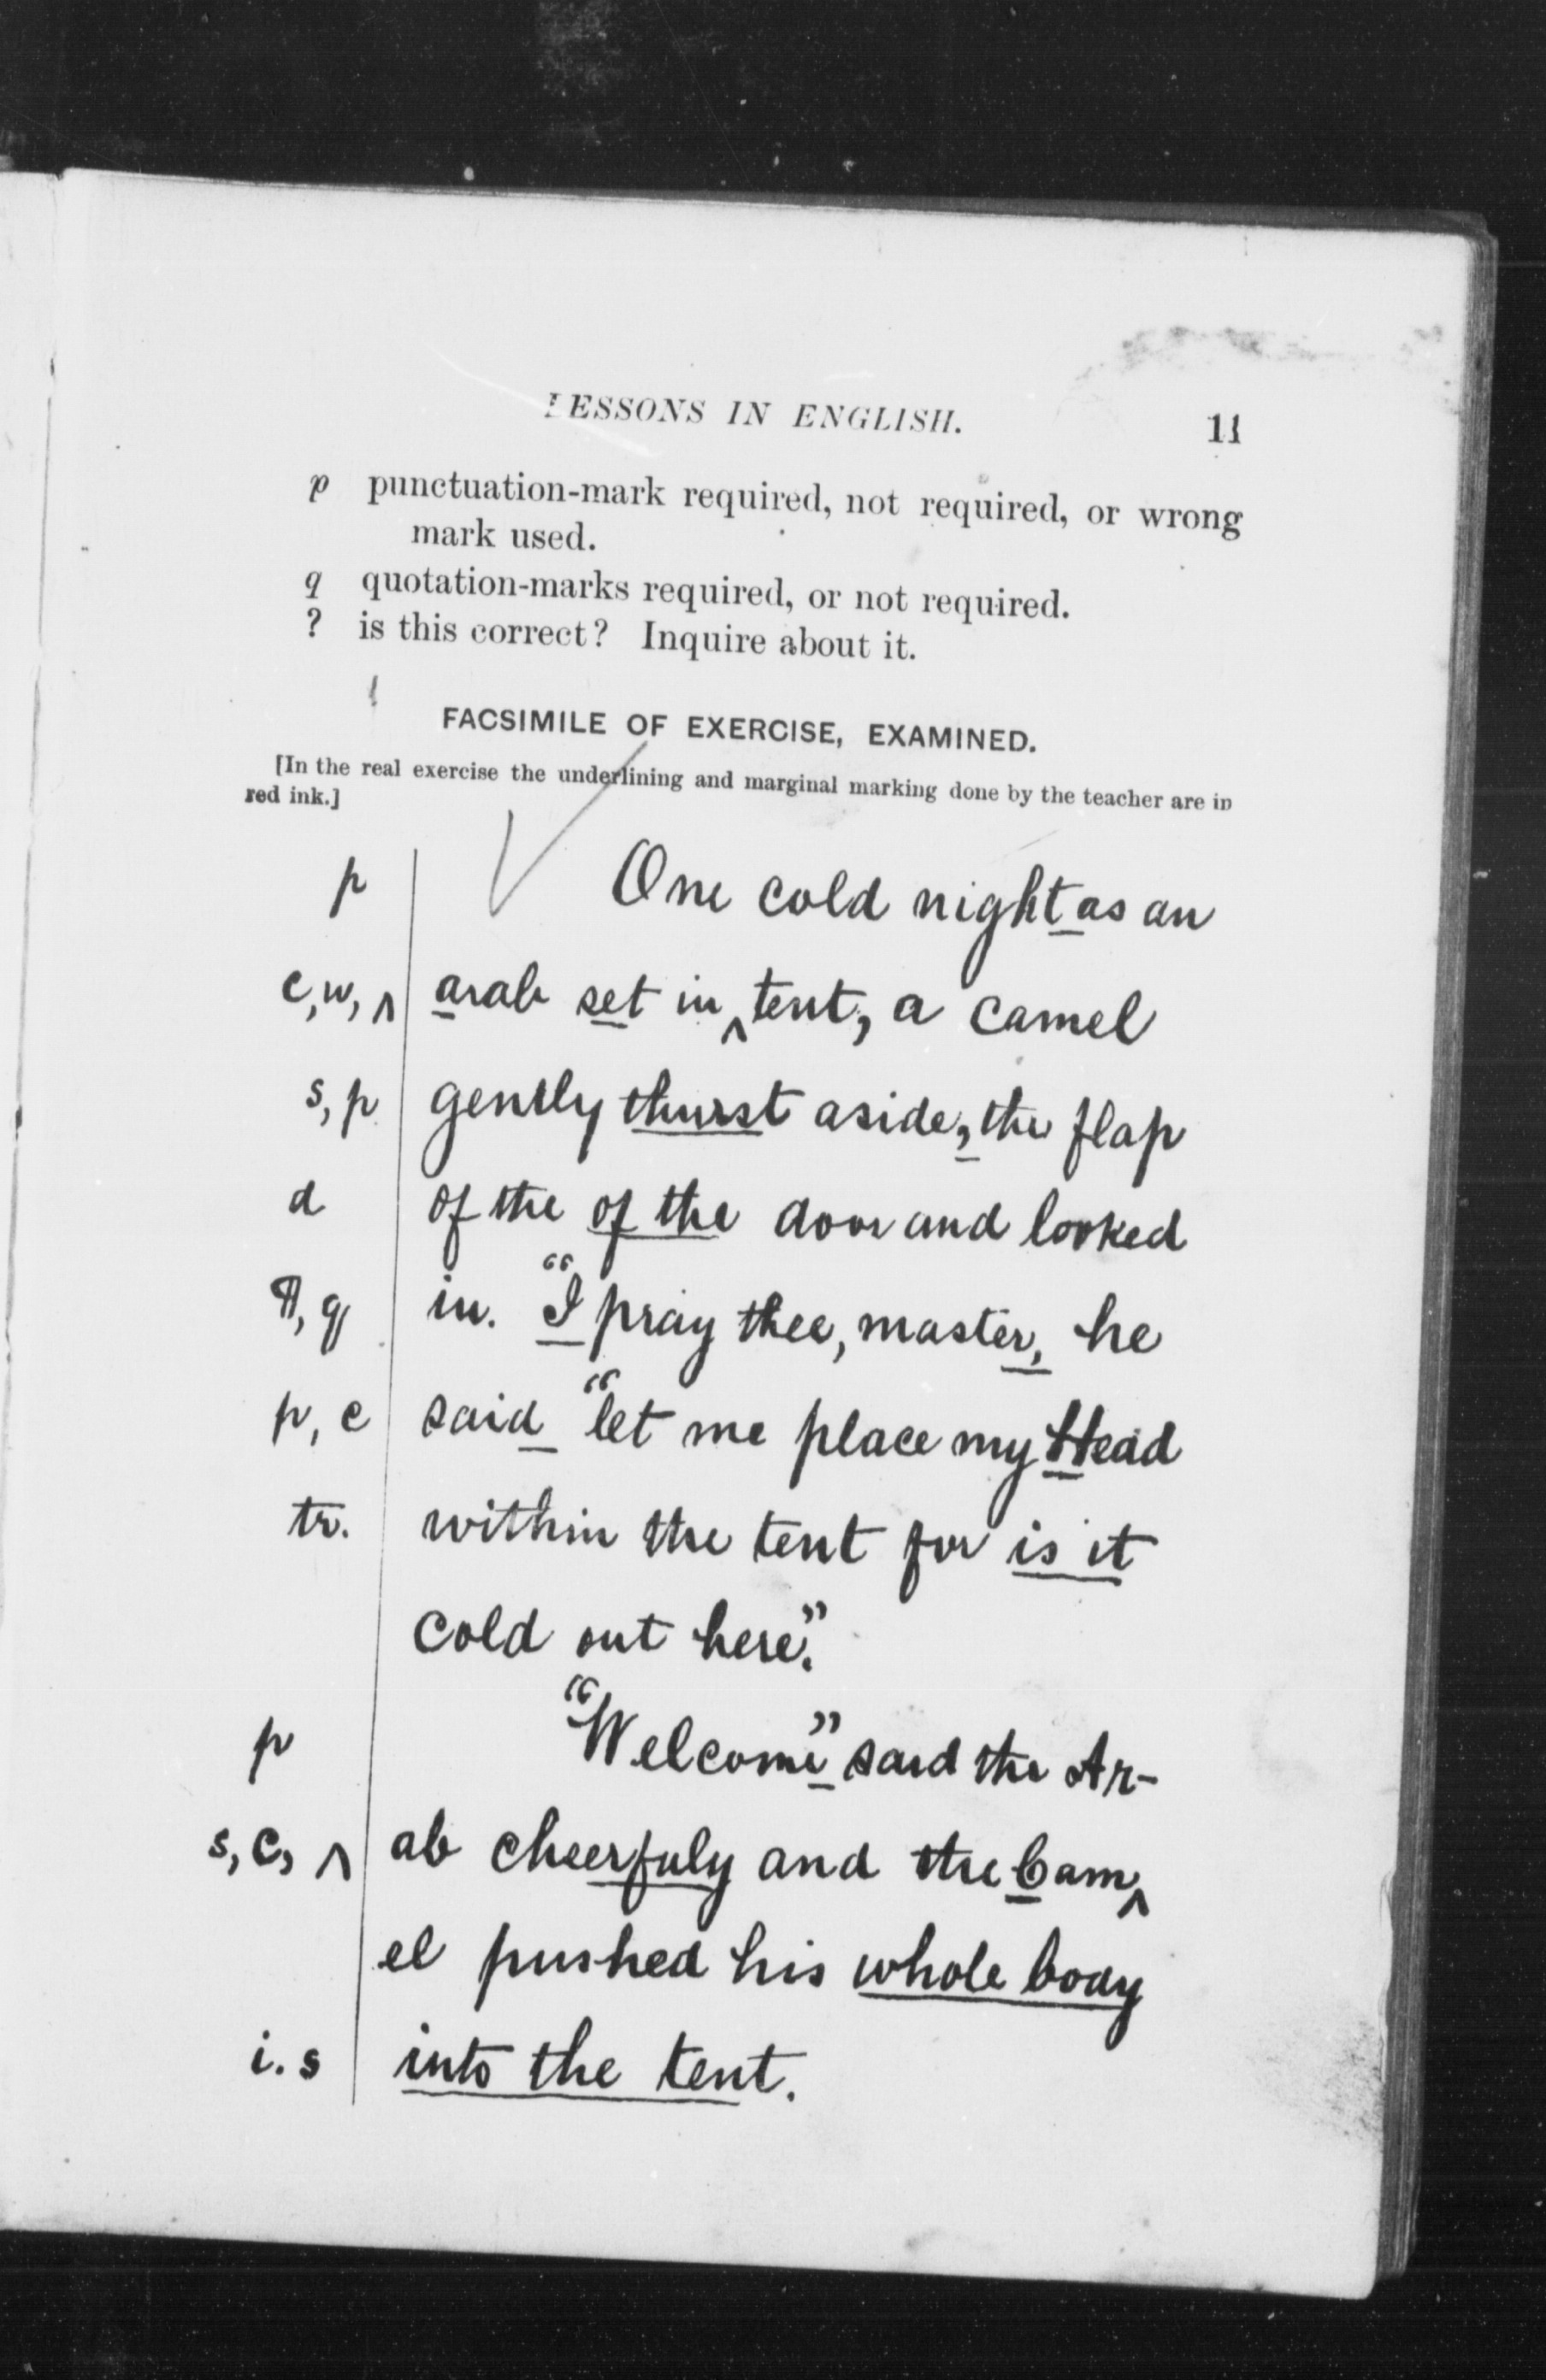 LESSONS IN ENGLISH. 11
p punctuation-mark required, not required, or wrong
mark used.
q quotation-marks required, or not required.
? is this correct? Inquire about it.
FACSIMILE OF EXERCISE, EXAMINED.
[In the real exercise the underlining and marginal marking done by the teacher are in
red ink.]
p One cold night as an
c, w, ^ arab set in ^ tent, a camel
s, p gently thurst aside, the flap
d of the of the door and looked
¶, q in. "I pray thee, master, he
p, c said "let me place my Head
tr. within the tent for is it
cold out here."
p "Welcome" said the Ar-
s, c, ^ ab cheerfuly and the Cam ^
el pushed his whole body
i. s into the tent.